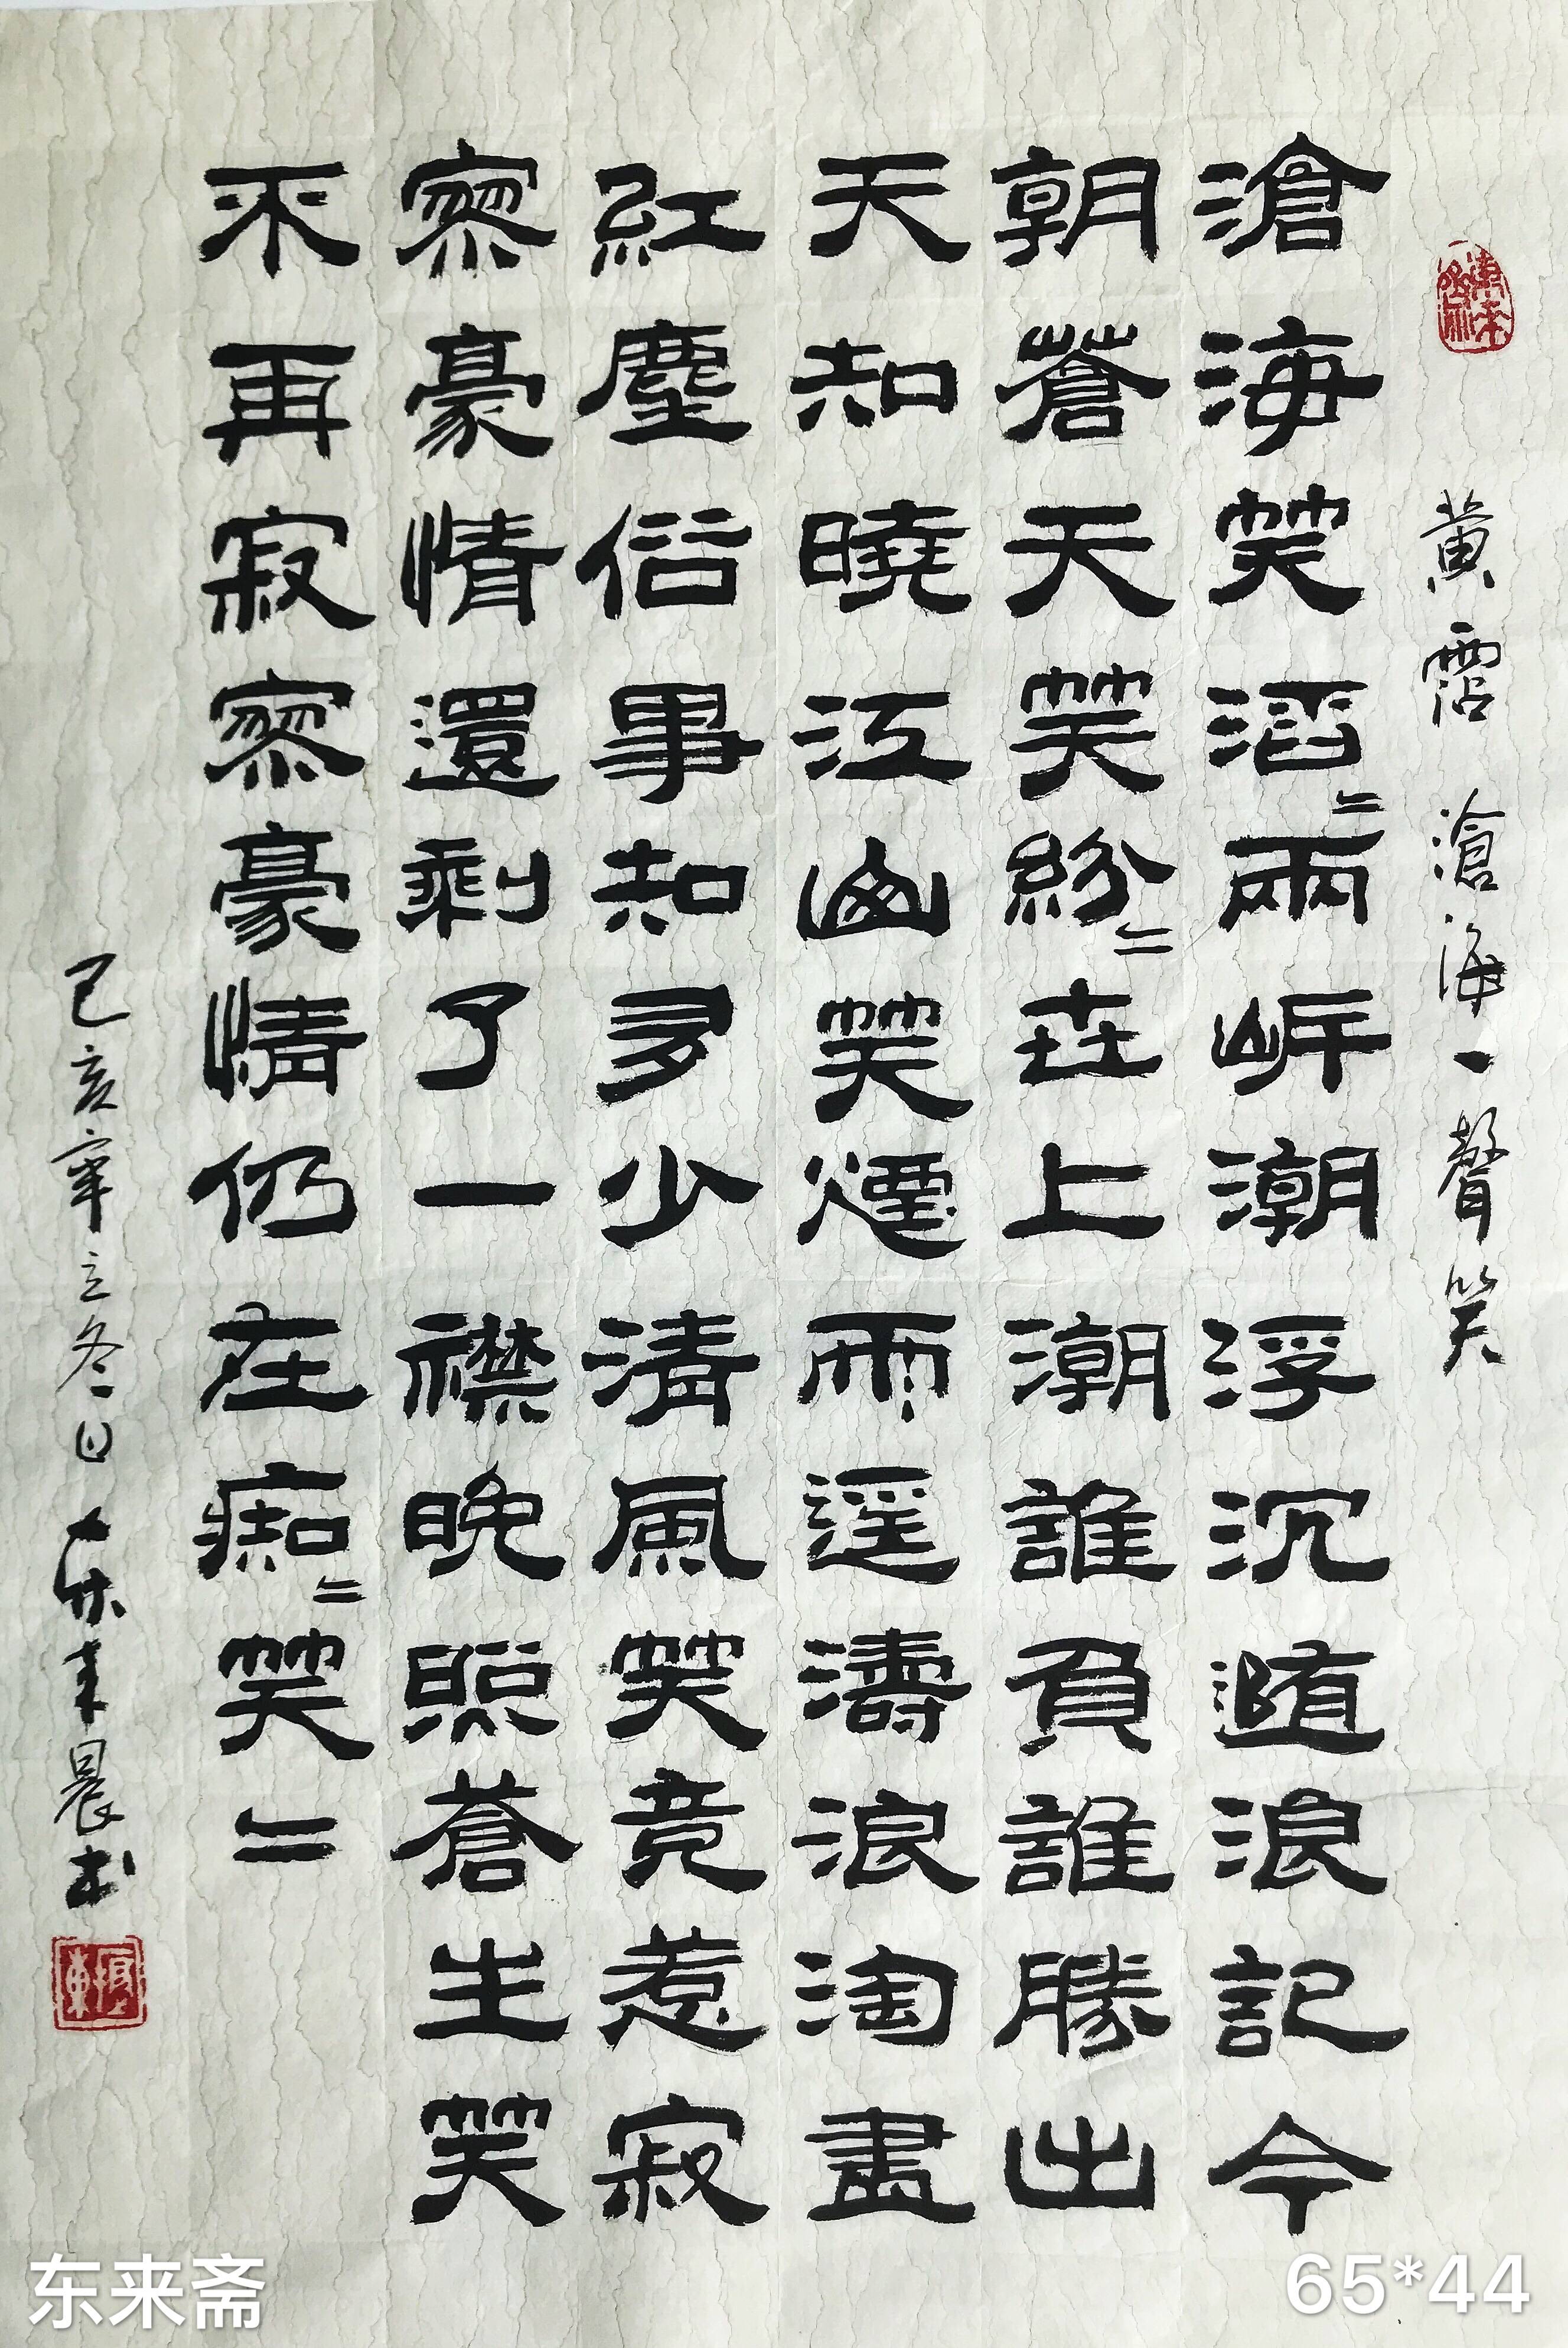 黃霑 滄海一聲笑
滄海笑滔〻兩岍潮浮沉随浪記今
朝蒼天笑紛〻世上潮誰負誰勝出
天知曉江山笑煙雨遥濤浪淘盡
紅塵俗事知多少清風笑竟惹寂
寥豪情還剩了一襟晚照蒼生笑
不再寂寥豪情仍在痴〻笑〻
己亥年立冬日 東晨書
东来斋
65*44